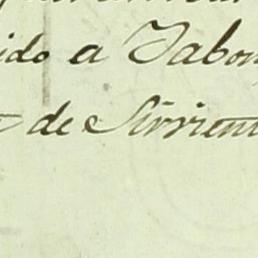 ido a Jabon
de Sirvient